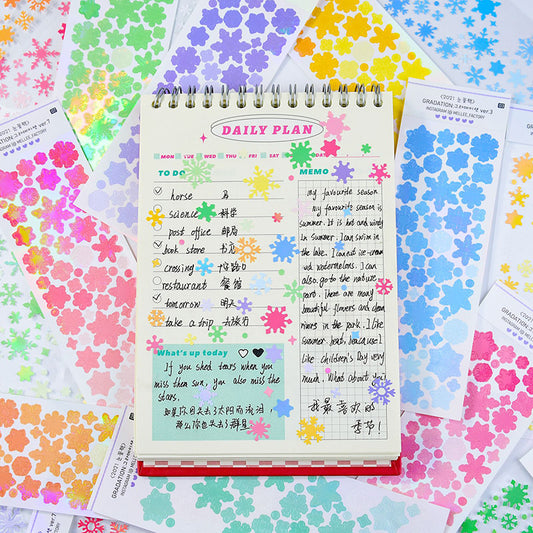 DAILY PLAN
MON TUE WED THU FRI SAT
TO DO
horse 马
science 科学
post office 邮局
book store 书店
crossing 十字路口
restaurant 餐馆
tomorrow 明天
take a trip 去旅行
What's up today
If you shed tears when you
miss then sun, you also miss the
stars.
如果你因失去了太阳而流泪,
那么你也失去了群星
MEMO
my favourite season
My favourite season is
summer. It is hot and windy
in summer. I can swim in
the lake. I can eat ice-cream
and watermelons. I can
also go to the nature
park. There are many
beautiful flowers and clean
rivers in the park. I like
summer best, because I
like Children's Day very
much. What about you?
我最喜欢的
季节!
GRADATION
INSTAGRAM @ MELLEE_FACTORY